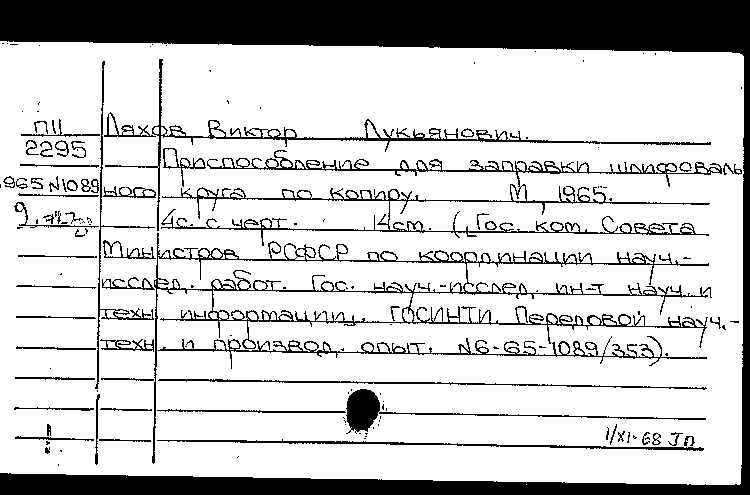 П11 Ляхов, Виктор Лукьянович.
2295 Приспособление для заправки шлифоваль
965 N1089 ного круга по копиру. М, 1965.
9. 4с. с черт. 14см. ([Гос. ком. Совета
Министров РСФСР по координации науч.-
исслед. работ. Гос. науч.-исслед. ин-т науч. и
техн. информации]. ГОСИНТИ. Передовой науч.-
техн. и производ. опыт. N6-65-1089/353).
1/XI-68 ЈП